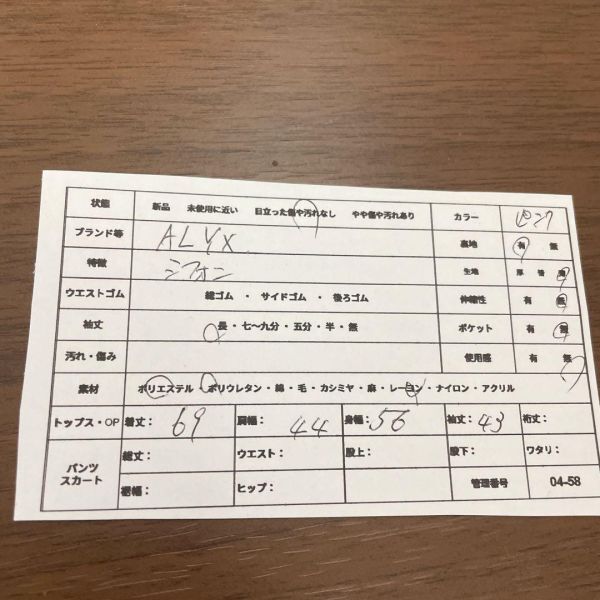 状態 新品 未使用に近い 目立った傷や汚れなし やや傷や汚れあり カラー ピンク
ブランド等 ALYX 裏地 有 無
特徴 シフォン 生地 厚 普
ウエストゴム 総ゴム ・ サイドゴム ・ 後ろゴム 伸縮性 有 無
袖丈 長・七〜九分・五分・半・無 ポケット 有 無
汚れ・傷み 使用感 有 無
素材 ポリエステル ポリウレタン・綿・毛・カシミヤ・麻・レーヨン・ナイロン・アクリル
トップス・OP 着丈: 69 肩幅: 44 身幅: 56 袖丈: 43 裄丈:
パンツ スカート 総丈: ウエスト: 股上: 股下: ワタリ:
裾幅: ヒップ: 管理番号 04-58